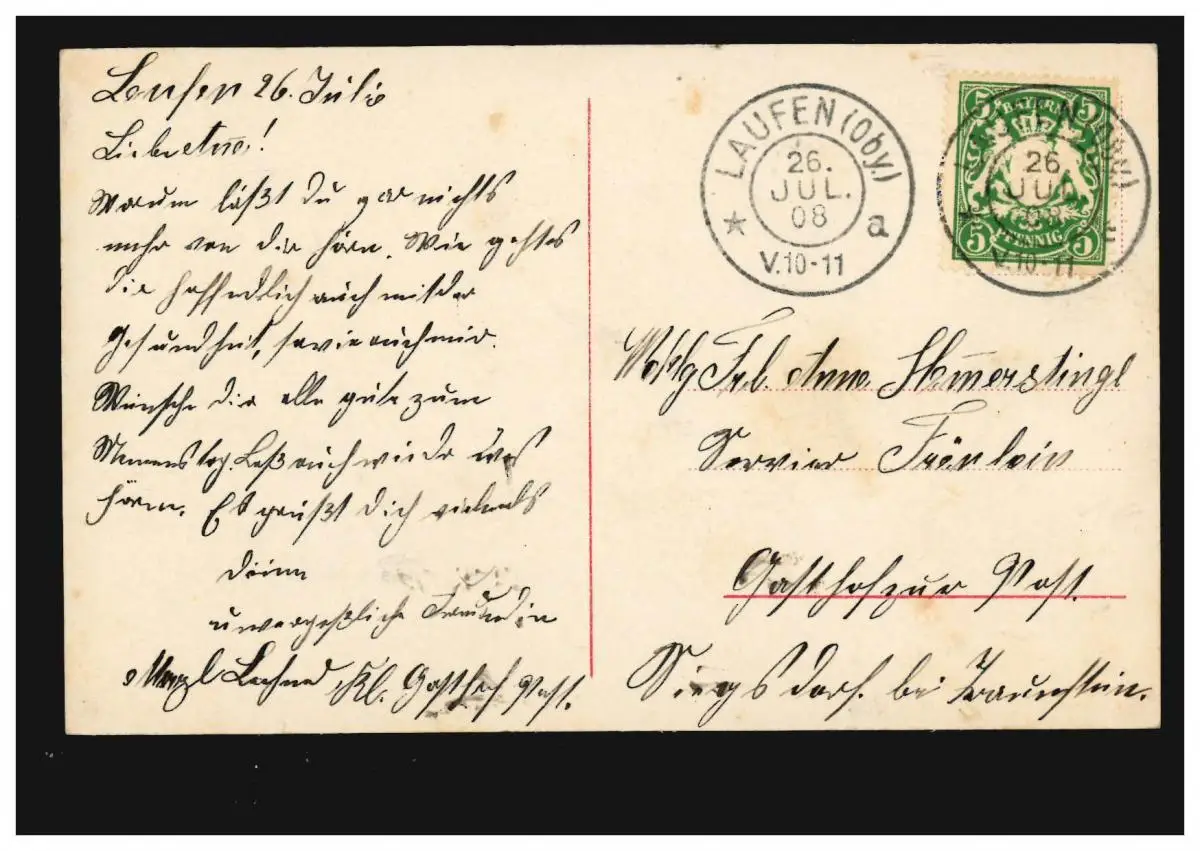 Laufen 26. Juli
Liebe Anne!
Warum läßt Du gar nichts
mehr von dir hören. Wie geht es
dir hoffendlich auch mit der
Gesundheit, sowie auch mir.
Wünsche dir alle gute zum
Namenstag. Laß auch wieder was
hören. Es grüßt dich vielmals
deine
unvergeßliche Freundin
Kl. Gasthof Post.
LAUFEN (Oby.)
26.
JUL.
08
a
V.10-11
5 BAYERN 5
5 PFENNIG 5
LAUFEN (Oby.)
26
JUL
08
V.10-11
Wohlg Frl. Anna Hamerstingl
Servier Fräulein
Gasthof zur Post.
Siegsdorf. bei Traunstein.